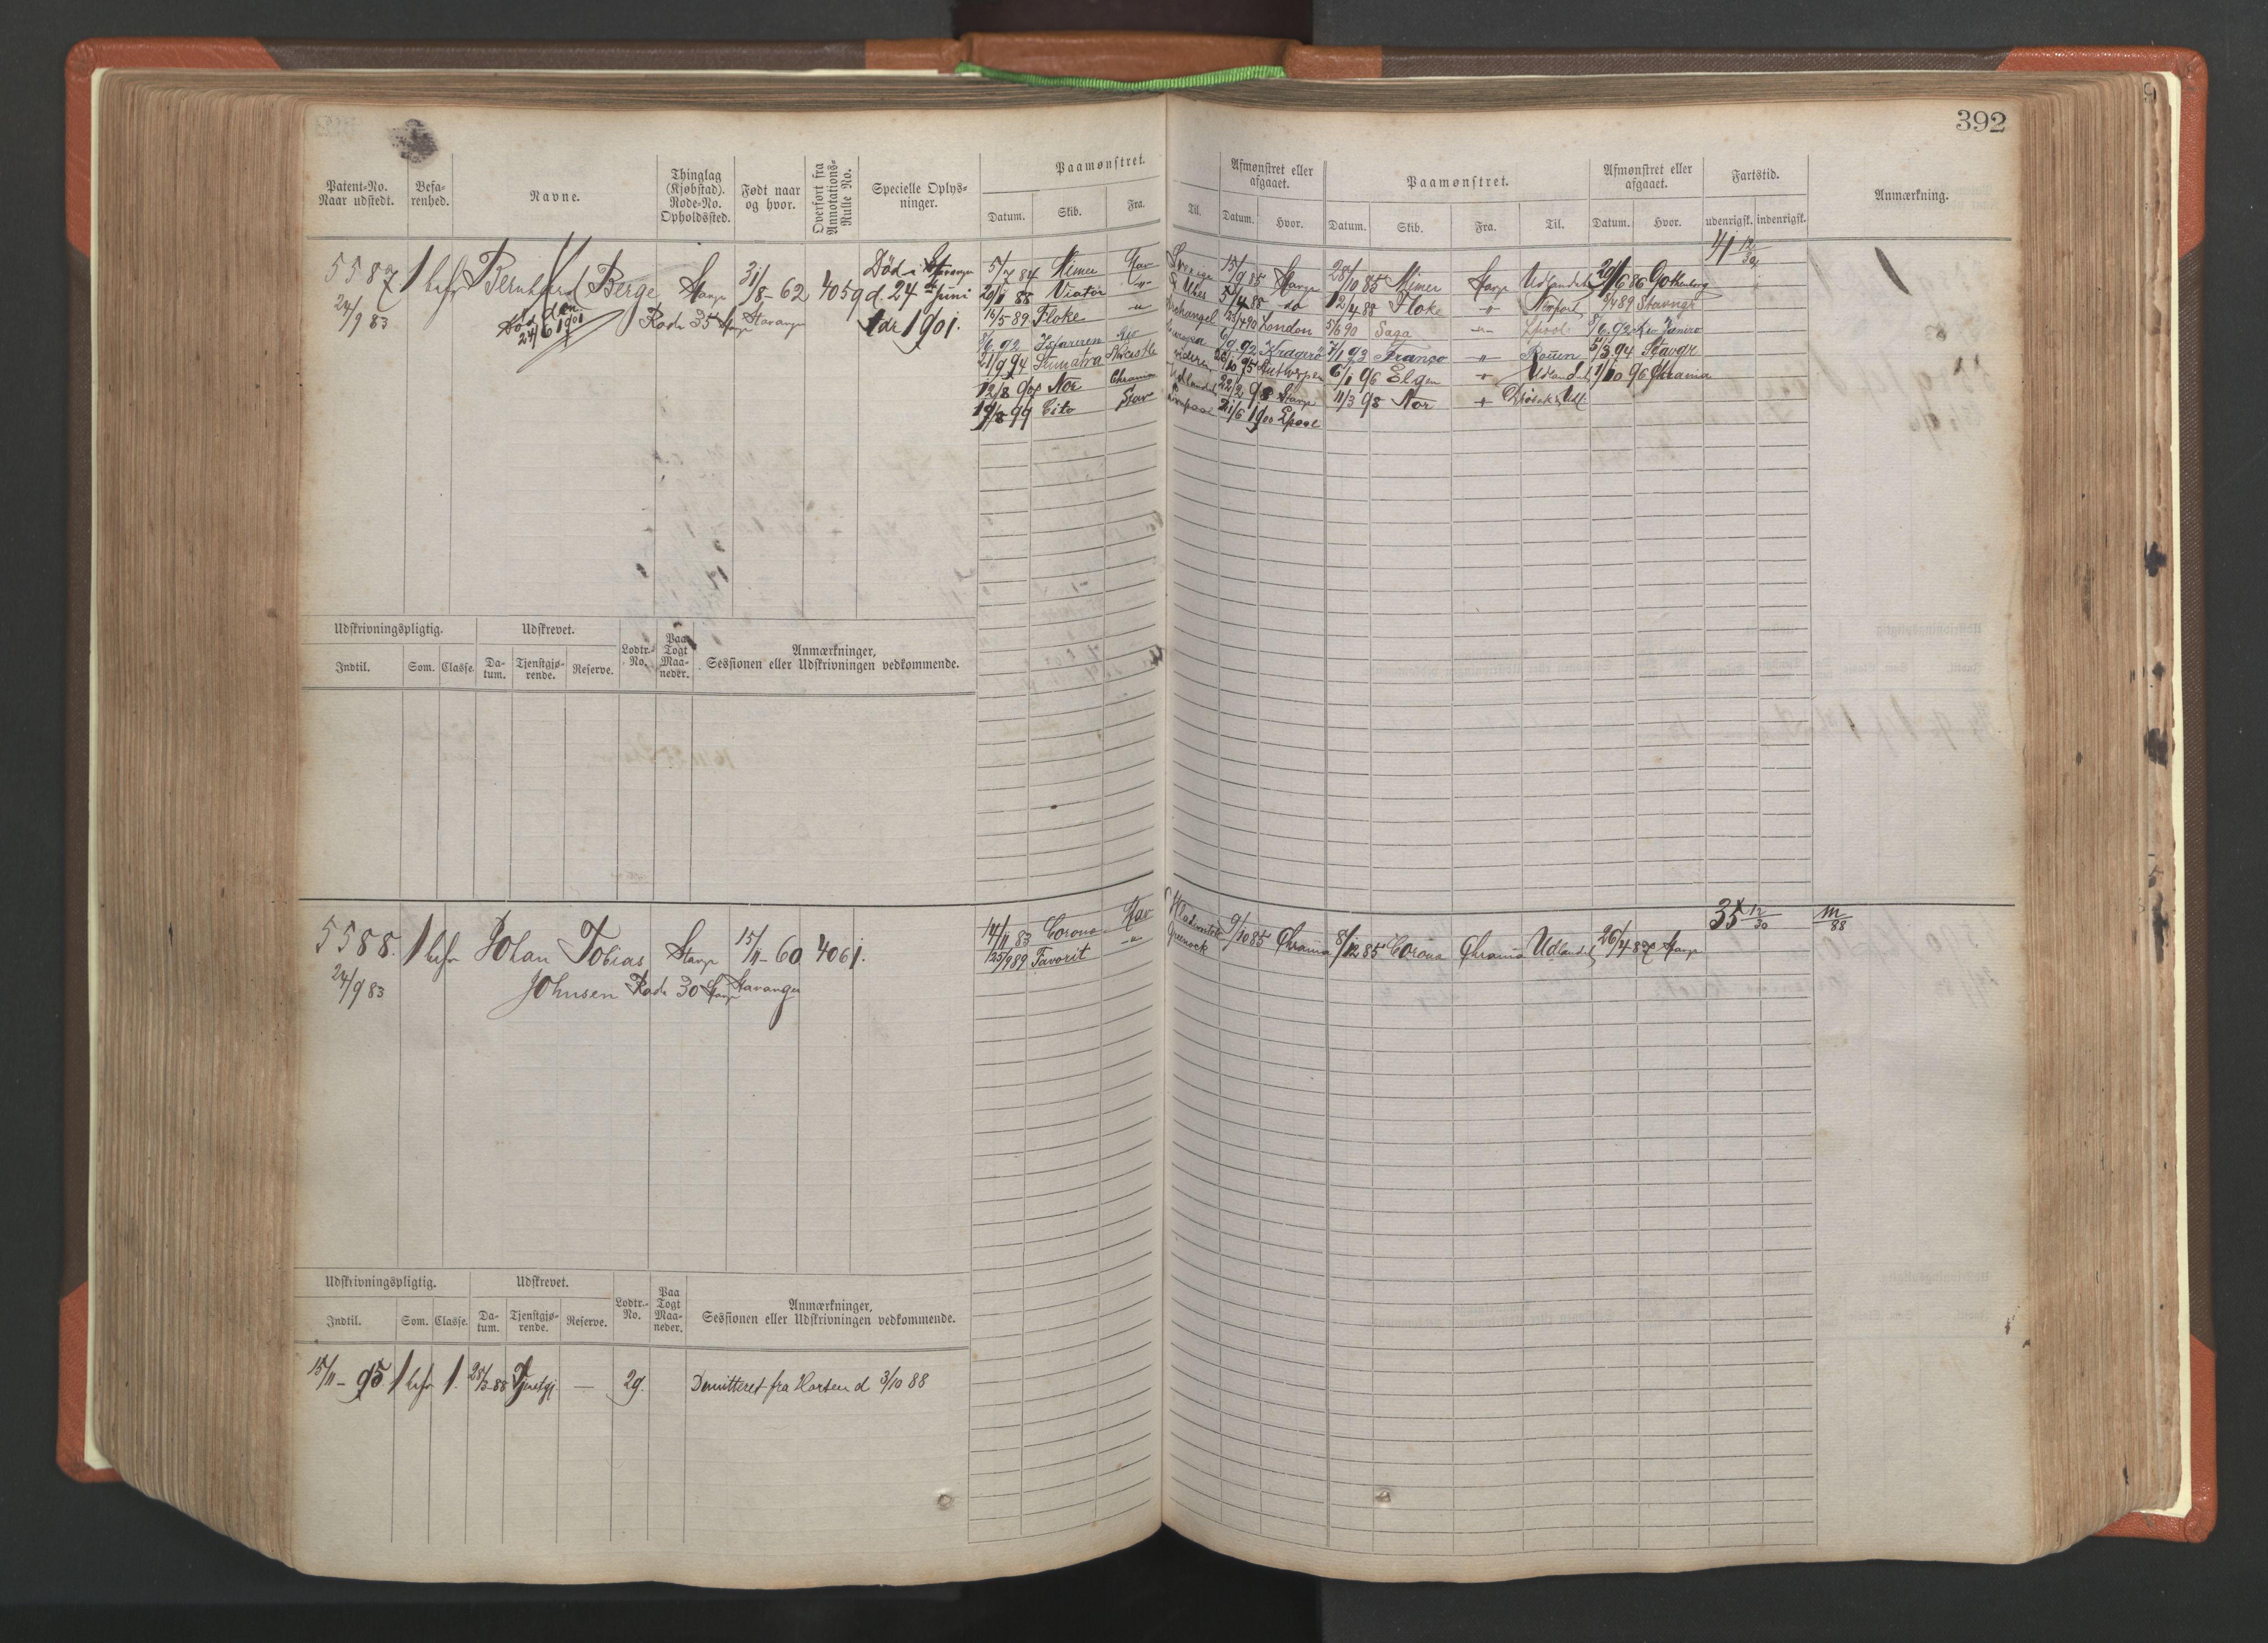 392
Patent-No. Naar udstedt. Befa-renhed. Navne. Thinglag (Kjøbstad). Rode-No. Opholdssted. Født naar og hvor. Overført fra Annotations-Rulle No. Specielle Oplys-ninger. Paamønstret. Afmønstret eller afgaaet. Paamønstret. Afmønstret eller afgaaet. Fartstid. Anmærkning.
Datum. Skib. Fra. Til. Datum. Hvor. Datum. Skib. Fra. Til. Datum. Hvor. udenrigsk. indenrigsk.
41 12/30
5587 1 bef Bernhard Berge Stavgr 31/8-62 4059 Død i Stavanger
24/9 83 Død den 24/6 1901 Rode 35 Stavgr Stavanger d. 24de Juni
Adr 1901.
5/7 84 Mimer Stav Sverige 15/9 85 Stavgr 28/10 85 Mimer Stavgr Udlandet 29/6 86 Gothenborg
29/11 88 Viator -"- St Ubes 5/4 88 do 12/4 88 Floke -"- Newport 3/4 89 Stavngr
16/5 89 Floke -"- Archangel 23/4 90 London 5/6 90 Saga -"- Lpool 8/6 92 Rio Janeiro
8/6 92 Isfareren Rio Europa 6/9 92 Kragerø 7/1 93 Franco -"- Rouen 5/3 94 Stavgr
21/9 94 Sumatra Newcastle videre 26/10 95 Antwerpen 6/1 96 Elgen -"- Udlandet 1/10 96 Chrania
12/8 97 Nor Chrania Udlandet 22/2 98 Stavgr 11/3 98 Nor -"-
19/8 99 Cito Stav Liverpool 21/6 1900 Lpool
Udskrivningspligtig. Udskrevet. Lodtr.-No. Paa Togt Maa-neder. Anmærkninger, Sessionen eller Udskrivningen vedkommende.
Indtil. Som. Classe. Da-tum. Tjenstgjø-rende. Reserve.
5588. 1 bef Johan Tobias Stavgr 15/11-60 4061.
24/9 83 Johnsen Rode 30 Stavgr Stavanger
14/11 83 Corona Stav Wladivostok 9/10 85 Chrania 8/12 85 Corona Chrania Udlandet 26/4 87 Stavgr 35 12/30 m/88
25/9 89 Favorit -"- Greenock
Udskrivningspligtig. Udskrevet. Lodtr.-No. Paa Togt Maa-neder. Anmærkninger, Sessionen eller Udskrivningen vedkommende.
Indtil. Som. Classe. Da-tum. Tjenstgjø-rende. Reserve.
15/11-95 1 bef 1. 28/3-88 Tjenstgj — 29. Dimitteret fra Horten d 3/10 88